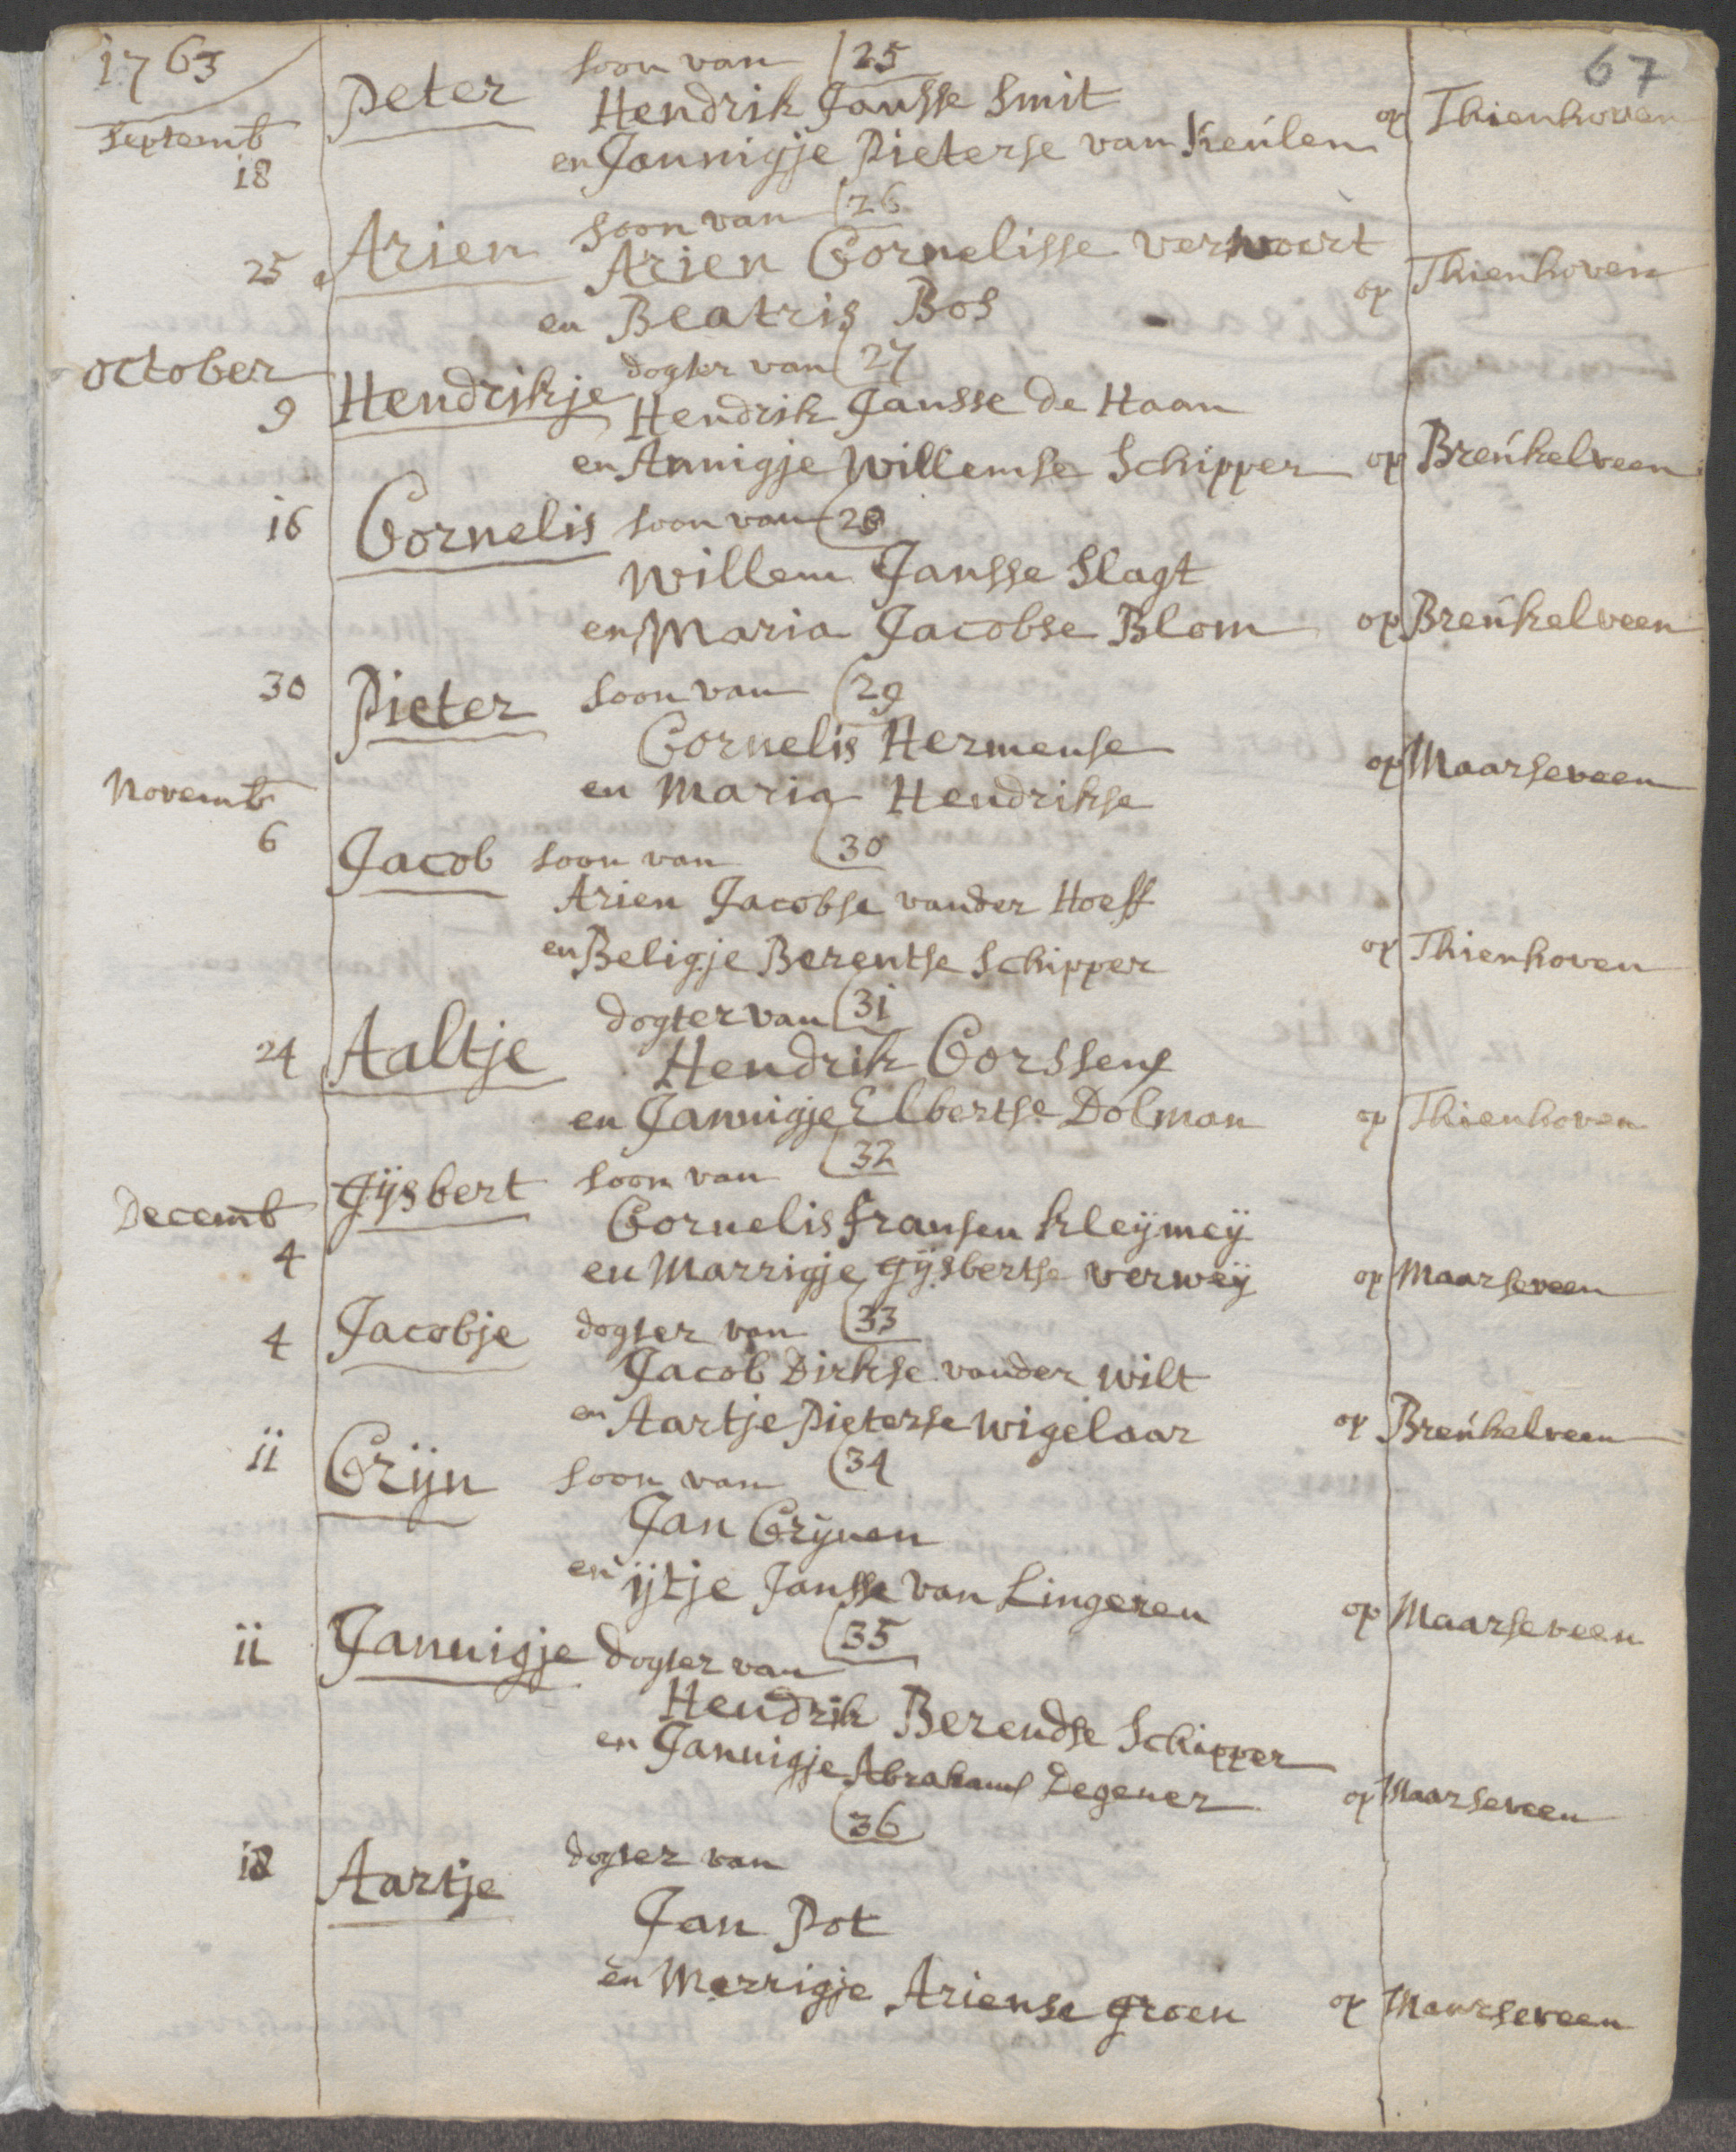 1763
67
Septemb
18
Peter soon van 25
Hendrik Jansse Smit
en Jannigje Pieterse van Keúlen op Thienhoven
25 Arien soon van 26
Arien Cornelisse verwoert
en Beatris Bos op Thienhoven
October
9 Hendrikje dogter van 27
Hendrik Jansse de Haan
en Annigje Willemse Schipper op Breúkelveen
16 Cornelis soon van 28
Willem Jansse Slagt
en Maria Jacobse Blom op Breúkelveen
30 Pieter soon van 29
Cornelis Hermense
en Maria Hendrikse op Maarseveen
Novemb
6 Jacob soon van 30
Arien Jacobse vander Hoeff
en Beligje Berentse Schipper op Thienhoven
24 Aaltje dogter van 31
Hendrik Corssens
en Jannigje Elbertse Dolman op Thienhoven
Decemb
4 Gÿsbert soon van 32
Cornelis fransen kleÿmeÿ
en Marrigje gÿsbertse verweÿ op Maarseveen
4 Jacobje dogter van 33
Jacob Dirkse vander Wilt
en Aartje Pieterse Wigelaar op Breúkelveen
11 Crÿn soon van 34
Jan Crÿnen
en ÿtje Jansse van Lingeren op Maarseveen
11 Jannigje dogter van 35
Hendrik Berendse Schipper
en Jannigje Abrahams Degener op Maarseveen
18 Aartje dogter van 36
Jan Pot
en Merrigje Ariense groen op Maarseveen